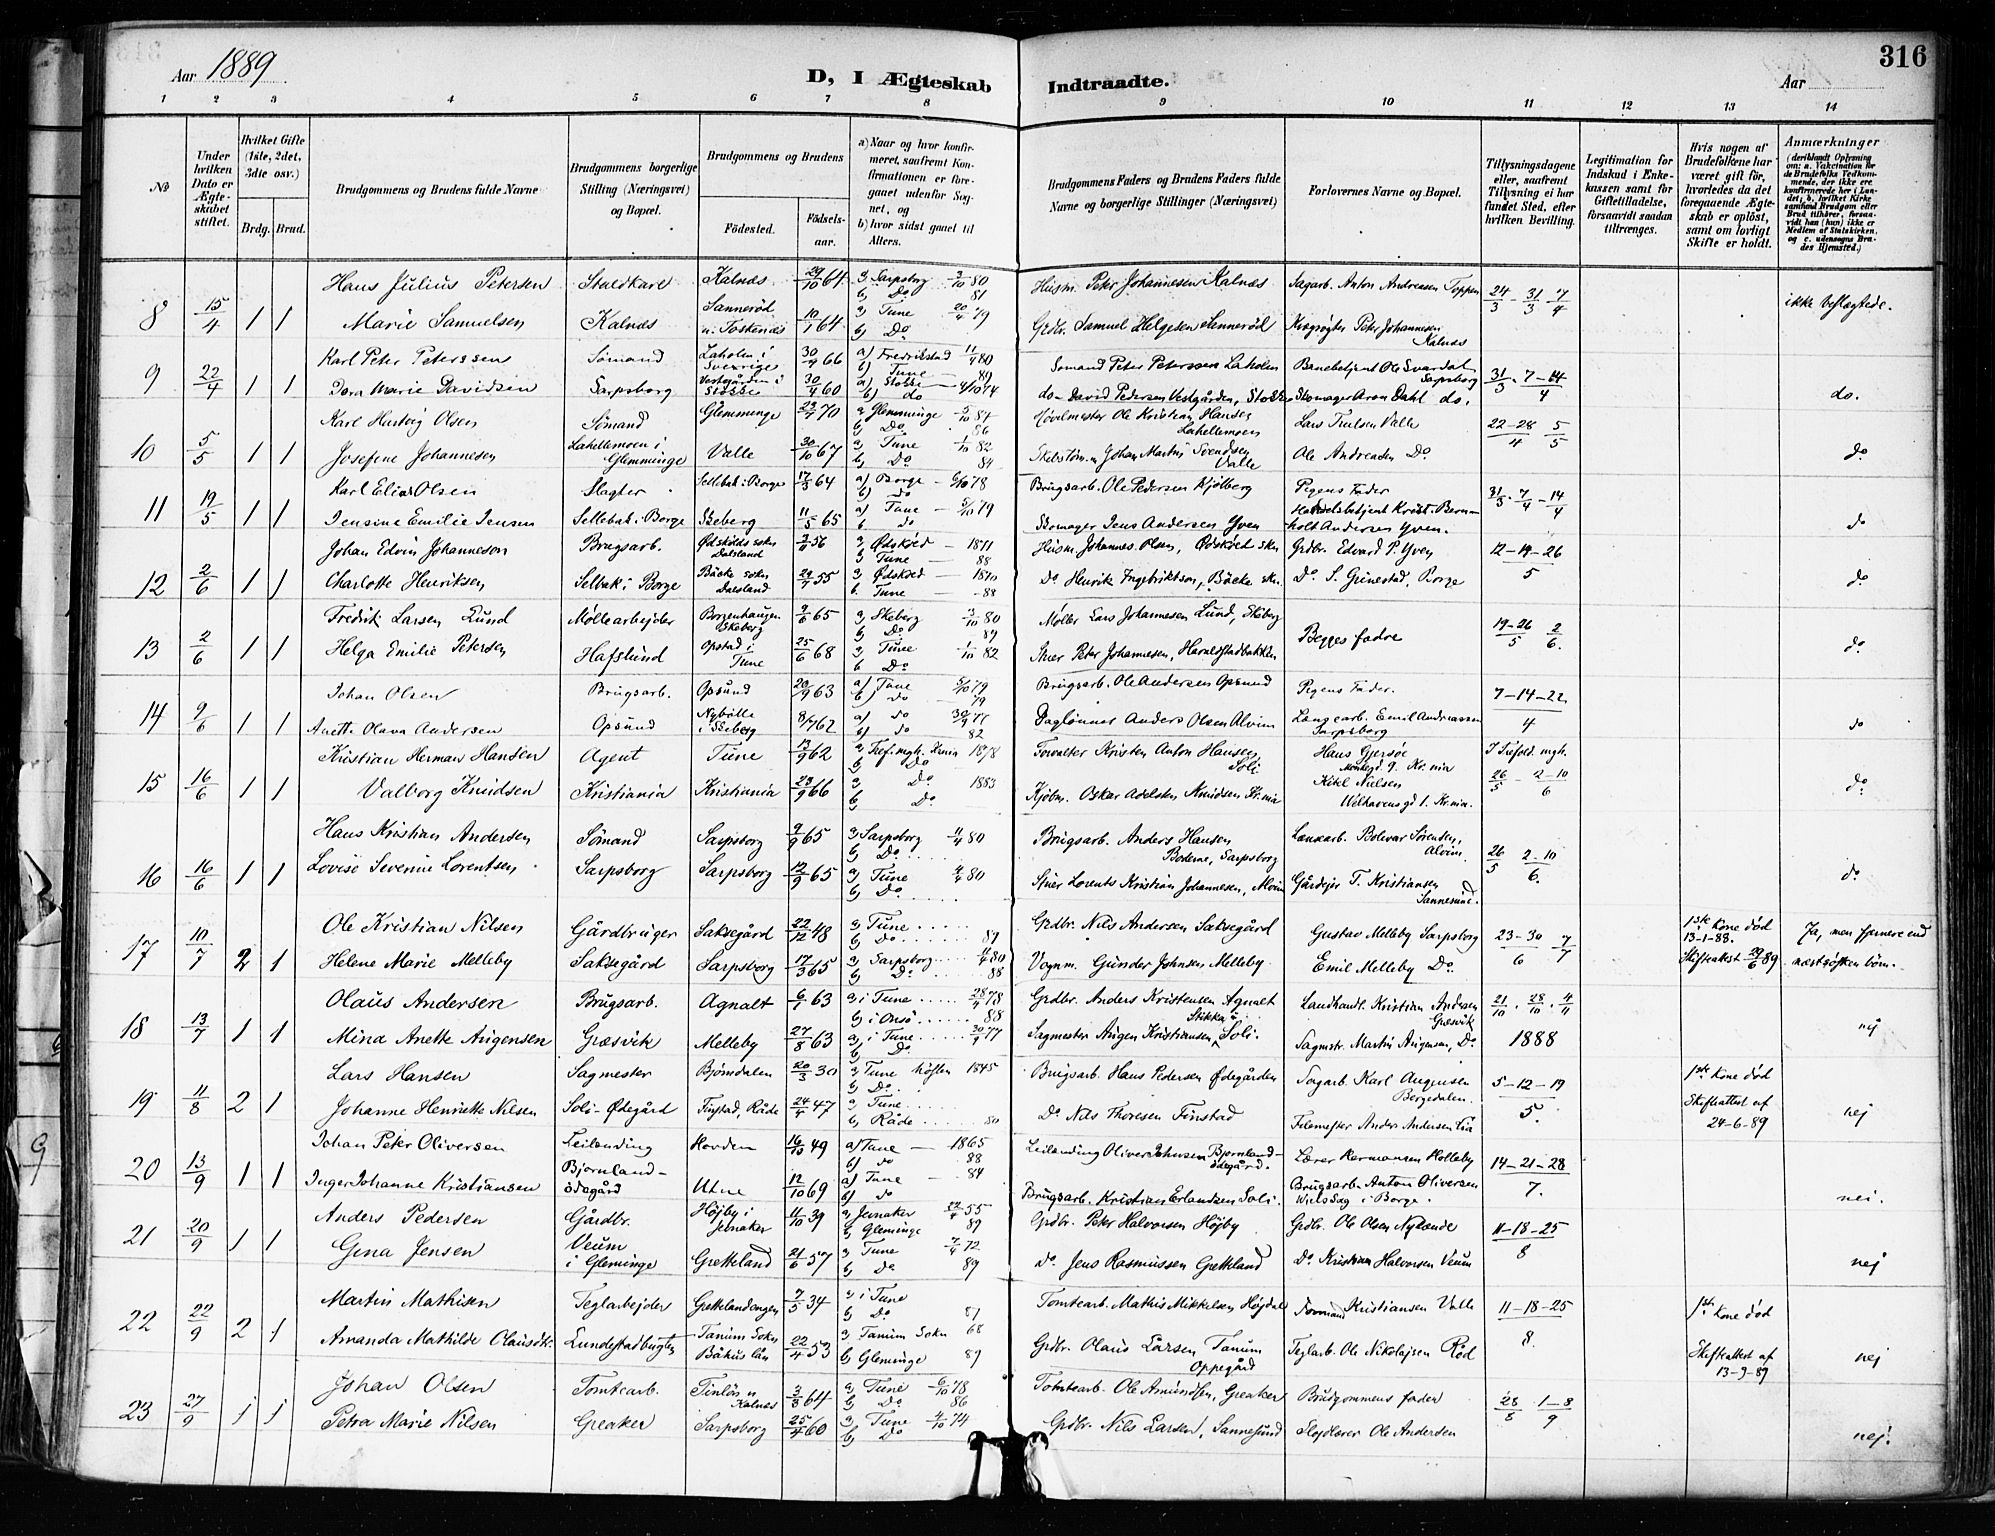 316
Aar 1889
D, I Ægteskab Indtraadte.
Aar
1 2 3 4 5 6 7 8 9 10 11 12 13 14
No
Under hvilken Dato er Ægteskabet stiftet.
Hvilket Gifte (1ste, 2det, 3die osv.)
Brdg. Brud.
Brudgommens og Brudens fulde Navne
Brudgommens borgerlige Stilling (Næringsvei) og Bopæl.
Brudgommens og Brudens
Fødested.
Fødsels-aar.
a) Naar og hvor konfirmeret, saafremt Konfirmationen er foregaaet udenfor Sognet, og
b) hvor sidst gaaet til Alters.
Brudgommens Faders og Brudens Faders fulde Navne og borgerlige Stillinger (Næringsvei)
Forlovernes Navne og Bopæl.
Tillysningsdagene eller, saafremt Tillysning ei har fundet Sted, efter hvilken Bevilling.
Legitimation for Indskud i Enkekassen samt for Giftetilladelse, forsaavidt saadan tiltrænges.
Hvis nogen af Brudefolkene har været gift før, hvorledes da det foregaaende Ægteskab er opløst, samt om lovligt Skifte er holdt.
Anmærkninger
Hans Julius Petersen Staldkarl Kalnæs 29/10 64 a) Sarpsborg 3/10 80 Husm. Peter Johannesen Kalnæs Sagarb. Anton Andreasen Toppen 24/3 - 31/3 7/4 ikke beslægtede.
b) Do 81
8 15/4 1 1 Marie Samuelsen Kalnæs Sannerød u. Toskenæs 10/1 64 a) Tune 20/4 79 Grdbr. Samuel Helgesen Sennerød Peter Johannesen Kalnæs
b) Do
Karl Peter Peterssen Sømand Laholm i Sverrige 30/9 66 a) Fredrikstad 11/4 80 Sømand Peter Peterssen Laholm Ole Svardal Sarpsborg 31/3 - 7-14/4 do.
b) Tune 89
9 22/4 1 1 Dora Marie Davidsen Sarpsborg Vestgården i Stokke 30/4 60 a) Stokke 4/10 74 do David Pedersen Vestgården, Stokke Skomager Aron Dahl do.
b) do
Karl Hartvig Olsen Sømand Glemminge 29/7 70 a) Glemminge 5/10 84 Ole Kristian Hansen Lahellemoen Lars Truelsen Valle 22-28/4 5/5
b) Do 86
10 5/5 1 1 Josefine Johannesen Lahellemoen i Glemminge Valle 30/10 67 a) Tune 1/10 82 Johan Martin Svendsen Valle Ole Andreasen Do do
b) Do 84
Karl Elias Olsen Slagter Sellebak i Borge 17/3 64 a) Borge 6/10 78 Brugsarb. Ole Pedersen Kjølberg Pigens Fader 31/3 - 7/4 - 14/4
b) do
11 19/5 1 1 Jensine Emilie Jensen Sellebak i Borge Skeberg 11/5 65 a) Tune 5/10 79 Skomager Jens Andersen Yven Handelsbetjent Krist. Bernholt Andersen Yven. do
b) do
Johan Edvin Johanneson Brugsarb. Ødskölds sokn Dalsland 2/11 56 a) Ødsköld 1871 Husm. Johannes Olsen, Ødsköld skn Grdbr. Edvard P. Yven 12-19-26/5
b) Tune 88
12 2/6 1 1 Charlotte Henriksen Selbak i Borge Bäcke sokn Dalsland 29/7 55 a) Ødsköld 1870 Do Henrik Ingebriktson, Bäcke skn. Do S. Grimstad, Borge do
b) Tune 88
Fredrik Larsen Lund Møllearbejder Borgenhaugen Skeberg 9/6 65 a) Skeberg 3/10 80 Møller Lars Johannesen Lund, Skeberg Begges fadre 19-26/5 2/6.
b) Do 89
13 2/6 1 1 Helga Emilie Petersen Hafslund Opstad i Tune 25/6 68 a) Tune 1/10 82 Peter Johannesen, do
b) Do
Johan Olsen Brugsarb. Opsund 20/9 63 a) Tune 5/10 79 Brugsarb. Ole Andersen Opsund Pigens Fader. 7-14-22/4
b) do 79
14 9/6 1 1 Anette Olava Andersen Opsund Nybølle i Skeberg 8/7 62 a) do 30/9 77 Anders Olsen Alvim Emil Andreassen Sarpsborg do
b) do 82
Kristian Herman Hansen Agent Tune 13/3 62 a) Tref. mgh. Xania 1878 Forvalter Kristen Anton Hansen Soli Hans Gjersøe Kr.nia I Trefold. mgh.
b) Do
15 16/6 1 1 Valborg Knudsen Kristiania Kristiania 23/9 66 a) Do 1883 Kjøbm. Oskar Adelsten Knudsen Kr.nia Kitel Nielsen Welhavens gd 1. Kr.nia. 26/5 - 2-10/6 do
b) Do
Hans Kristian Andersen Sømand Sarpsborg 9/9 65 a) Sarpsborg 11/4 80 Brugsarb. Anders Hansen Boderne, Sarpsborg Bolevar Sørensen, Alvim. 26/5 2-10/6.
b) Do
16 16/6 1 1 Lovise Severine Lorentsen Sarpsborg Sarpsborg 12/9 65 a) Tune 4/4 80 Lorents Kristian Johannesen, Alvim Gårdejer T. Kristiansen Sannesund. do
b) Do
Ole Kristian Nilsen Gårdbruger Saksegård 22/12 48 a) Tune Grdbr. Nils Andersen Saksegård Gustav Melleby Sarpsborg 23-30/6 7/7 1ste Kone død 13-1-88. Ja, men fjernere end
b) Do 89
17 10/7 2 1 Helene Marie Melleby Saksegård Sarpsborg 17/3 65 a) Sarpsborg 4/4 80 Vognm. Gunder Johnsen Melleby Emil Melleby Do Skifteattest 29/6 89 næstsøsken børn.
b) Do 88
Olaus Andersen Brugsarb. Agnalt 6/1 63 a) i Tune 28/4 78 Grdbr. Anders Kristensen Agnalt Landhandl. Kristian Andersen Græsvik 21/10 - 28/10 - 4/11
b) i Onsø 88
18 13/7 1 1 Mina Anette Augensen Græsvik Melleby 27/8 63 a) i Tune 30/9 77 Sagmester Augen Kristiansen Stikka i Soli Sagmstr. Martin Augensen, Do 1888 nej
b) Do
Lars Hansen Sagmester Bjørnsdalen 20/3 30 a) Tune høsten 1845 Brugsarb. Hans Pedersen Ødegården Sagarb. Karl Augensen Bergedalen. 5-12-19/5. 1ste Kone død
b) Do
19 11/8 2 1 Johanne Henriette Nilsen Soli-Ødegård Finstad, Råde 24/4 47 a) Tune Do Nils Thoresen Finstad Anders Andersen Lia Skifteattest af 24-6-89 nej
b) Råde 80
Johan Peter Oliversen Leilending Hovden 16/10 49 a) Tune 1865 Leilending Oliver Johnsen Bjørnland-ødegård. Lærer Hermansen Holleby 14-21-28/7.
b) do 88
20 13/9 1 1 Inger Johanne Kristiansen Bjørnland-ødegård Utne 12/10 69 a) Tune 84 Brugsarb. Kristian Erlandsen Soli. Brugsarb. Anton Oliversen i Borge. nei.
b) do
Anders Pedersen Gårdbr. Højby i Jevnaker 11/10 39 a) Jevnaker 22/4 55 Grdbr. Peter Halvorsen Højby Grdbr. Ole Olsen Nylænde 11-18-25/8
b) Gleminge 89
21 20/9 1 1 Gina Jensen Veum i Gleminge Gretteland 21/6 57 a) Tune 7/4 72 Do Jens Rasmussen Gretteland Do Kristian Halvorsen Veum nej
b) Do 89
Martin Mathisen Teglarbejder Grettelandengen 7/5 34 a) i Tune Tomtearb. Mathis Mikkelsen Højdal Kristiansen Valle 11-18-25/8. 1ste Kone død
b) Do 87
22 22/9 2 1 Amanda Mathilde Olausdtr. Lundestadbugten Tanum Sokn Båhus län 22/4 53 a) Tanum Sokn 68 Grdbr. Olaus Larsen Tanum Oppegård Teglarb. Ole Nikolajsen Rød Skifteattest af 13-9-89 nej
b) Gleminge 89
Johan Olsen Tomtearb. Kalnæs 3/3 64 a) Tune 6/10 78 Tomtearb. Ole Amundsen, Greaker Brudgommens fader 28/8 1-8/9
b) Do 86
23 27/9 1 1 Petra Marie Nilsen Greaker Sarpsborg 25/4 60 a) Tune 4/10 74 Grdbr. Nils Larsen, Sannesund Ole Andersen nej.
b) Do